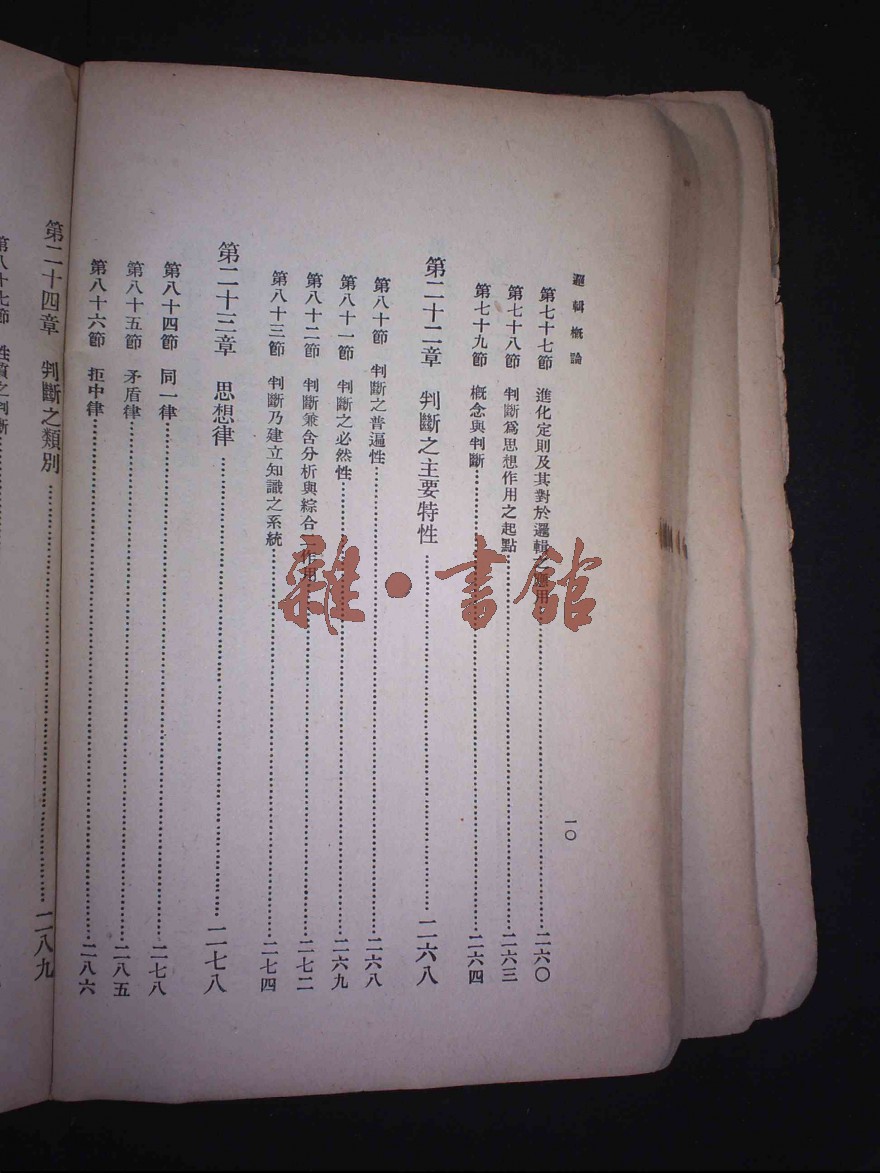 邏輯概論
一〇
第七十七節 進化定則及其對於邏輯之應用 二六〇
第七十八節 判斷爲思想作用之起點 二六三
第七十九節 概念與判斷 二六四
第二十二章 判斷之主要特性 二六八
第八十節 判斷之普遍性 二六八
第八十一節 判斷之必然性 二六九
第八十二節 判斷兼含分析與綜合二作用 二七二
第八十三節 判斷乃建立知識之系統 二七四
第二十三章 思想律 二七八
第八十四節 同一律 二七八
第八十五節 矛盾律 二八五
第八十六節 拒中律 二八六
第二十四章 判斷之類別 二八九
第八十七節 性質之判斷
雜·書館